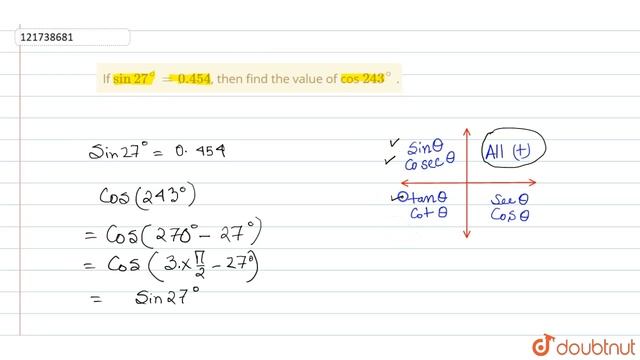 121738681
If sin 27° = 0.454, then find the value of cos 243° .
Sin27° = 0. 454
Cos(243°)
= Cos(270° - 27°)
= Cos(3.×π/2 - 27°)
= Sin27°
Sinθ
Cosecθ
All (+)
tanθ
Cotθ
Secθ
Cosθ
doubtnut